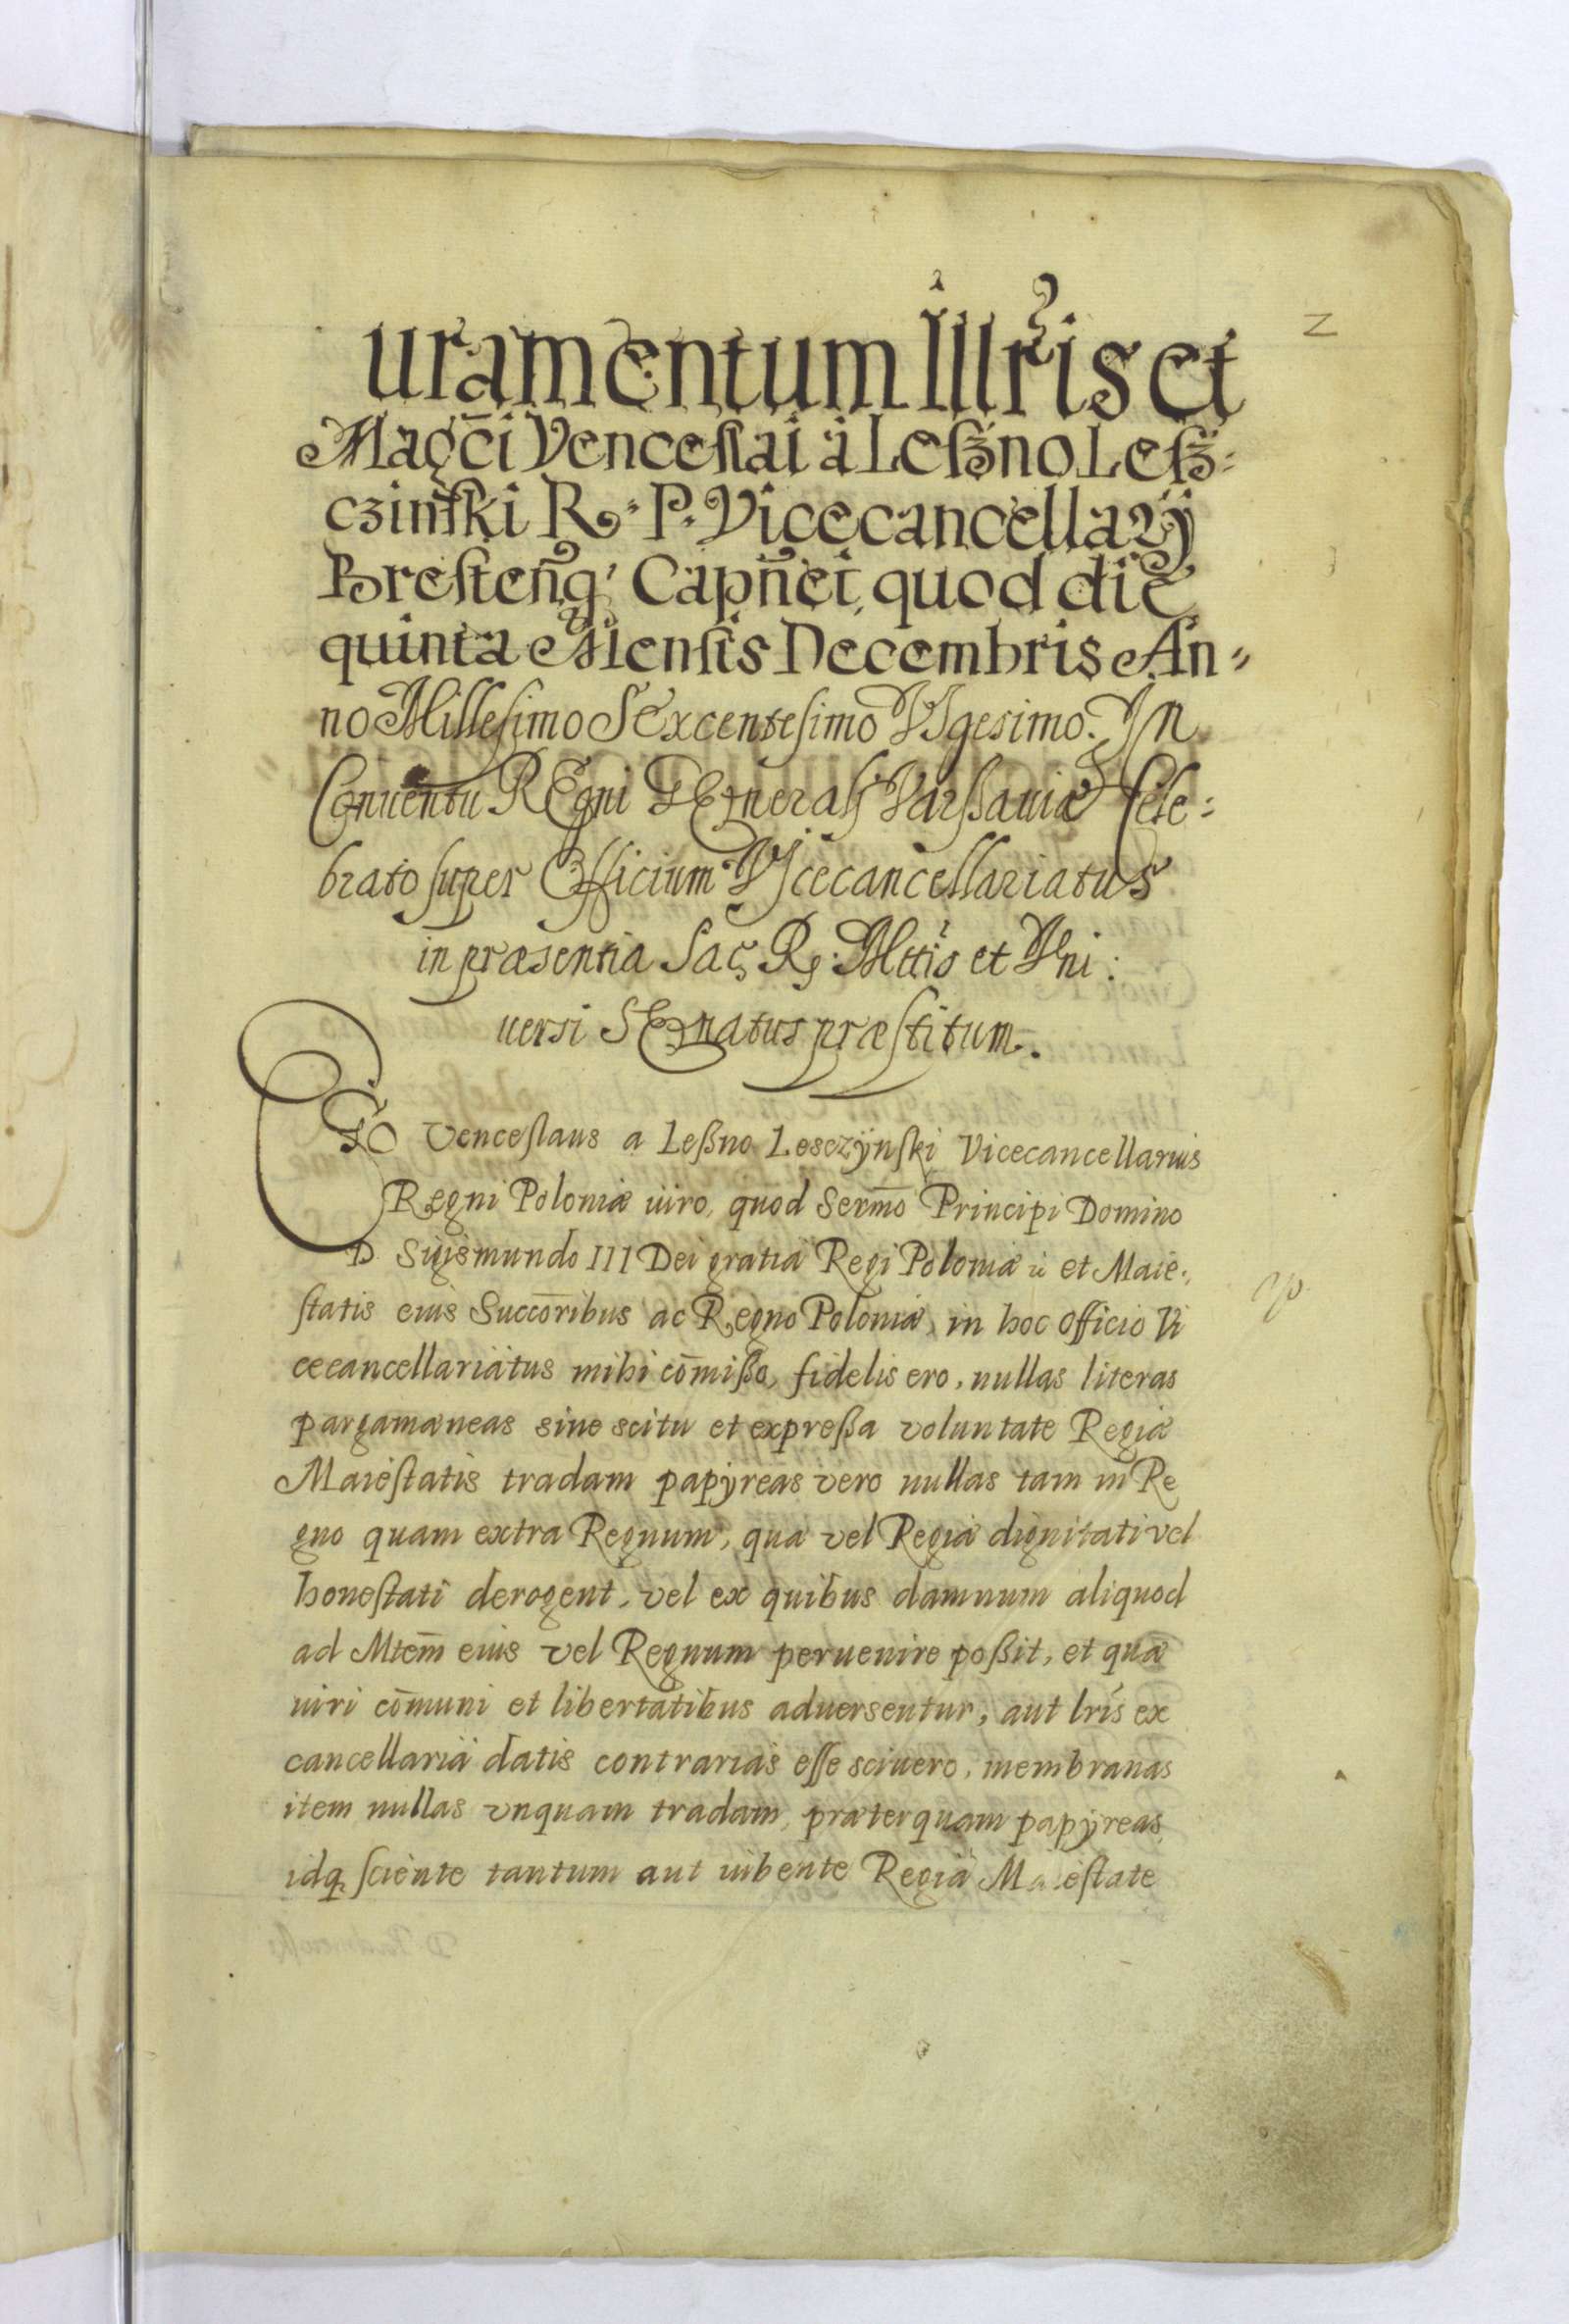 uramentum Illr̃is et
Magc̃i Venceslai à Leßno Lesz=
czinski R. P. Vicecancellarÿ
Bresteñ q' Capñei quod die
quinta Mensis Decembris An=
no Millesimo Sexcentesimo Vigesimo. In
Conuentu Regni Generali Varsauiæ Cele=
brato super Officium Vicecancellariatus
in præsentia Sac. R. Mttis et Vni:
uersi Senatus præstitum.
Ego Venceslaus a Leßno Lesczÿnski Vicecancellarius
Regni Poloniæ iuro, quod Sermō Principi Domino
D. Sigismundo III Dei gratia Regi Poloniæ et Maie:
statis eius Succoribus ac Regno Poloniæ, in hoc officio Vi
cecancellariatus mihi cōmißo, fidelis ero, nullas literas
pargamæneas sine scitu et expreßa voluntate Regiæ
Maiestatis tradam papÿreas vero nullas tam in Re
gno quam extra Regnum, quæ vel Regiæ dignitati vel
honestati derogent, vel ex quibus damnum aliquod
ad Mtem̄ eius vel Regnum peruenire poßit, et quæ
iuri cōmuni et libertatibus aduersentur, aut lrīs ex
cancellaria datis contrarias esse sciuero, membranas
item nullas vnquam tradam, præterquam papÿreas,
idq. sciente tantum aut iubente Regia Maiestate